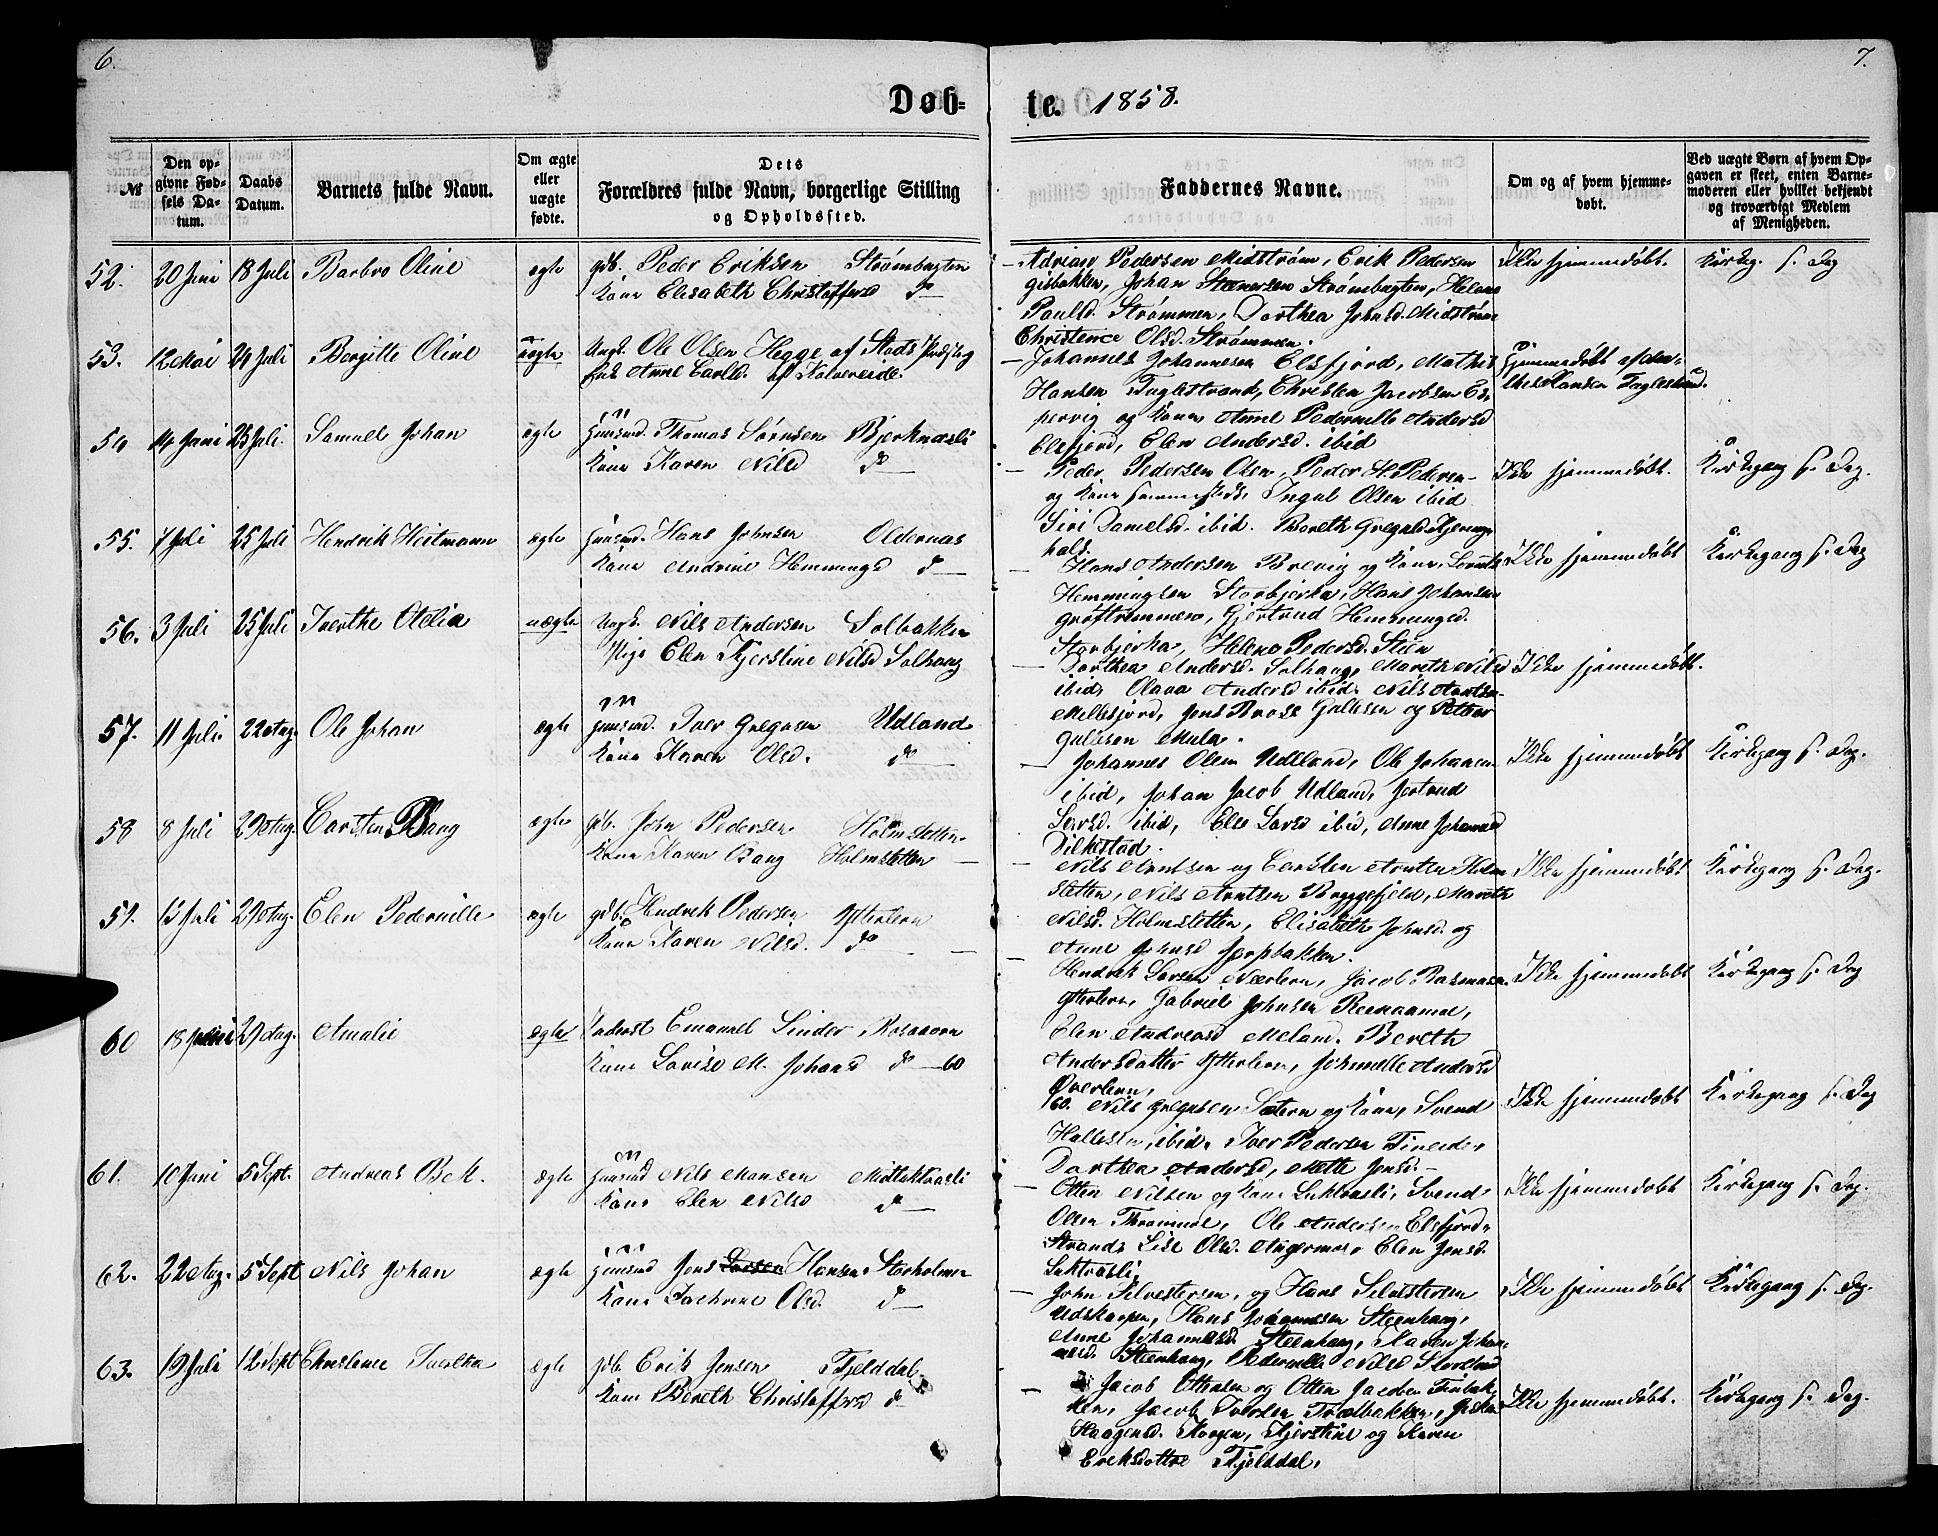 6.
7.
Døb=
te. 1858.
№
Den op=
givne Fød=
sels Da=
tum.
Daabs
Datum.
Barnets fulde Navn.
Om ægte
eller
uægte
fødte.
Dets
Forældres fulde Navn, borgerlige Stilling
og Opholdssted.
Faddernes Navne.
Om og af hvem hjemme=
døbt.
Ved uægte Børn af hvem Op=
gaven er skeet, enten Barne=
moderen eller hvilket bekjendt
og troværdigt Medlem
af Menigheden.
52. 20 Juni 18 Juli Barbro Oline ægte gdb. Peder Eriksen Strømbugten
Kone Elisabeth Christoffersd do
Adrian Pedersen Midstrøm, Erik Pedersen
Johan Stenersen Strømbugten, Helene
Paulsd. Strømmen, Dorthea Johnsd. Midstrøm
Christence Olsd. Strømmen.
Ikke hjemmedøbt.
53. 12 Mai 24 Juli Bergitte Oline uægte Ungk. Ole Olsen Hegge af Stods
Anne Carlsd. af Kolvereide.
Johannes Johannesen Elsfjord, Mathis
Hansen Fuglestrand, Christen Jacobsen Es=
pervig og Kone, Anne Pedernille Andersd
Elsfjord, Elen Andersd. ibid
Hjemmedøbt af Ma=
this Hansen Fuglestrand.
54 14 Juni 25 Juli. Samuel Johan ægte Huusmd. Thomas Sørnsen Bjerknæsli
Kone Karen Nilsd do
Peder Pedersen Olsen, Peder H. Pedersen
og Kone sammesteds, Ingel Olsen ibid
Siri Danielsd. ibid. Bereth Gregusd
Ikke hjemmedøbt. Kirkegang s. Dag.
55. 7 Juli 25 Juli Hendrik Heitmann ægte Huusmd. Hans Johnsen Oldernæs
Kone Andrine Hemmingsd do
Hans Andersen Brevig og Kone,
Hemmingsen Storbjerka, Hans Johansen
Grøftremmen, Gjertrud Hemmingsd.
Storbjerka, Helene Pedersd. Stien
Ikke hjemmedøbt Kirkegang s. Dag
56. 3 Juli 25 Juli Iverthe Otelia uægte Ungk. Nils Andersen Solbakken
Pige Elen Kjerstine Nilsd Solhaug
Dorthea Andersd. Solhaug, Mareth Nilsd
ibid, Olava Andersd ibid. Nils
Ikke hjemmedøbt.
57. 11 Juli 22 Aug. Ole Johan ægte Huusmd. Iver Gregusen Udland
Kone Karen Olsd. do
Johannes Olsen Udland, Ole Johansen
ibid, Johan Jacob Udland, Jertrud
Larsd. ibid, Else Larsd ibid, Anne Johannesd
Dilkestad.
Ikke hjemmedøbt Kirkegang s. Dag.
58 8 Juli 29 Aug. Carsten Bang ægte gdb. John Pedersen Holmsletten
Kone Karen Bang Holmsletten
Nils Arntsen og Carsten Arntsen Holm
sletten, Nils Arntsen Bryggefjeld, Mareth
Nilsd. Holmsletten, Elisabeth Johnsd. og
Anne Johnsd
Ikke hjemmedøbt Kirkegang s. Dag.
59. 12 Juli 29 Aug. Elen Pedernille ægte gdb. Hendrik Pedersen Ytterlern
Kone Karen Nilsd. do
Hendrik Larsen Nærlern, Jacob Rasmusen
Ytterlern, Gabriel Johnsen
Elen Andreasd Meland. Bereth
Andersdatter Ytterlern, Johnelle Andersd
Øverlern,
Ikke hjemmedøbt Kirkegang s. Dag
60 18 Juni 29 Aug. Amalie ægte Inderst Emanuel Linder, Rosaaren
Kone Lovise M. Johansd do 60
60. Nils Gregusen Sætern og Kone, Svend
Hallesen, ibid. Iver Pedersen Fineide,
Dorthea Andersd, Mette Jensd.
Ikke hjemmedøbt Kirkegang s. Dag
61. 10 Juni 5 Sept. Andreas Bek. ægte Huusmd Nils Monsen Midtluktvasli
Kone Elen Nilsd do
Otten Nilsen og Kone Luktvasli, Svend
Olsen, Ole Andersen Elsfjord=
Strand, Lise Olsd. Angermo, Elen Jensd.
Luktvasli,
Ikke hjemmedøbt Kirkegang s. Dag.
62. 22 Aug. 5 Sept Nils Johan ægte Huusmd Jens Larsen Hansen, Storholmen
Kone Olsd. do
John Silvestersen, og Hans Silvestersen
Udskarpen, Hans Johannessen Steenhaug,
Anne Johannesd. Steenhaug, Maren Johan=
nesd. Steenhaug, Pedernille Nilsd
Ikke hjemmedøbt Kirkegang s. Dag.
63. 19 Juli 12 Sept Christence ægte gdb. Erik Jensen Fjelddal
Kone Bereth Christoffersd do
Jacob Ottesen og Otten Jacobsen Finbak=
ken, Jacob Iversen Trælbakken,
Haagensd. Kroegen, Kjerstine og Karen
Eriksdottre Fjelddal.
Ikke hjemmedøbt. Kirkegang s. Dag.